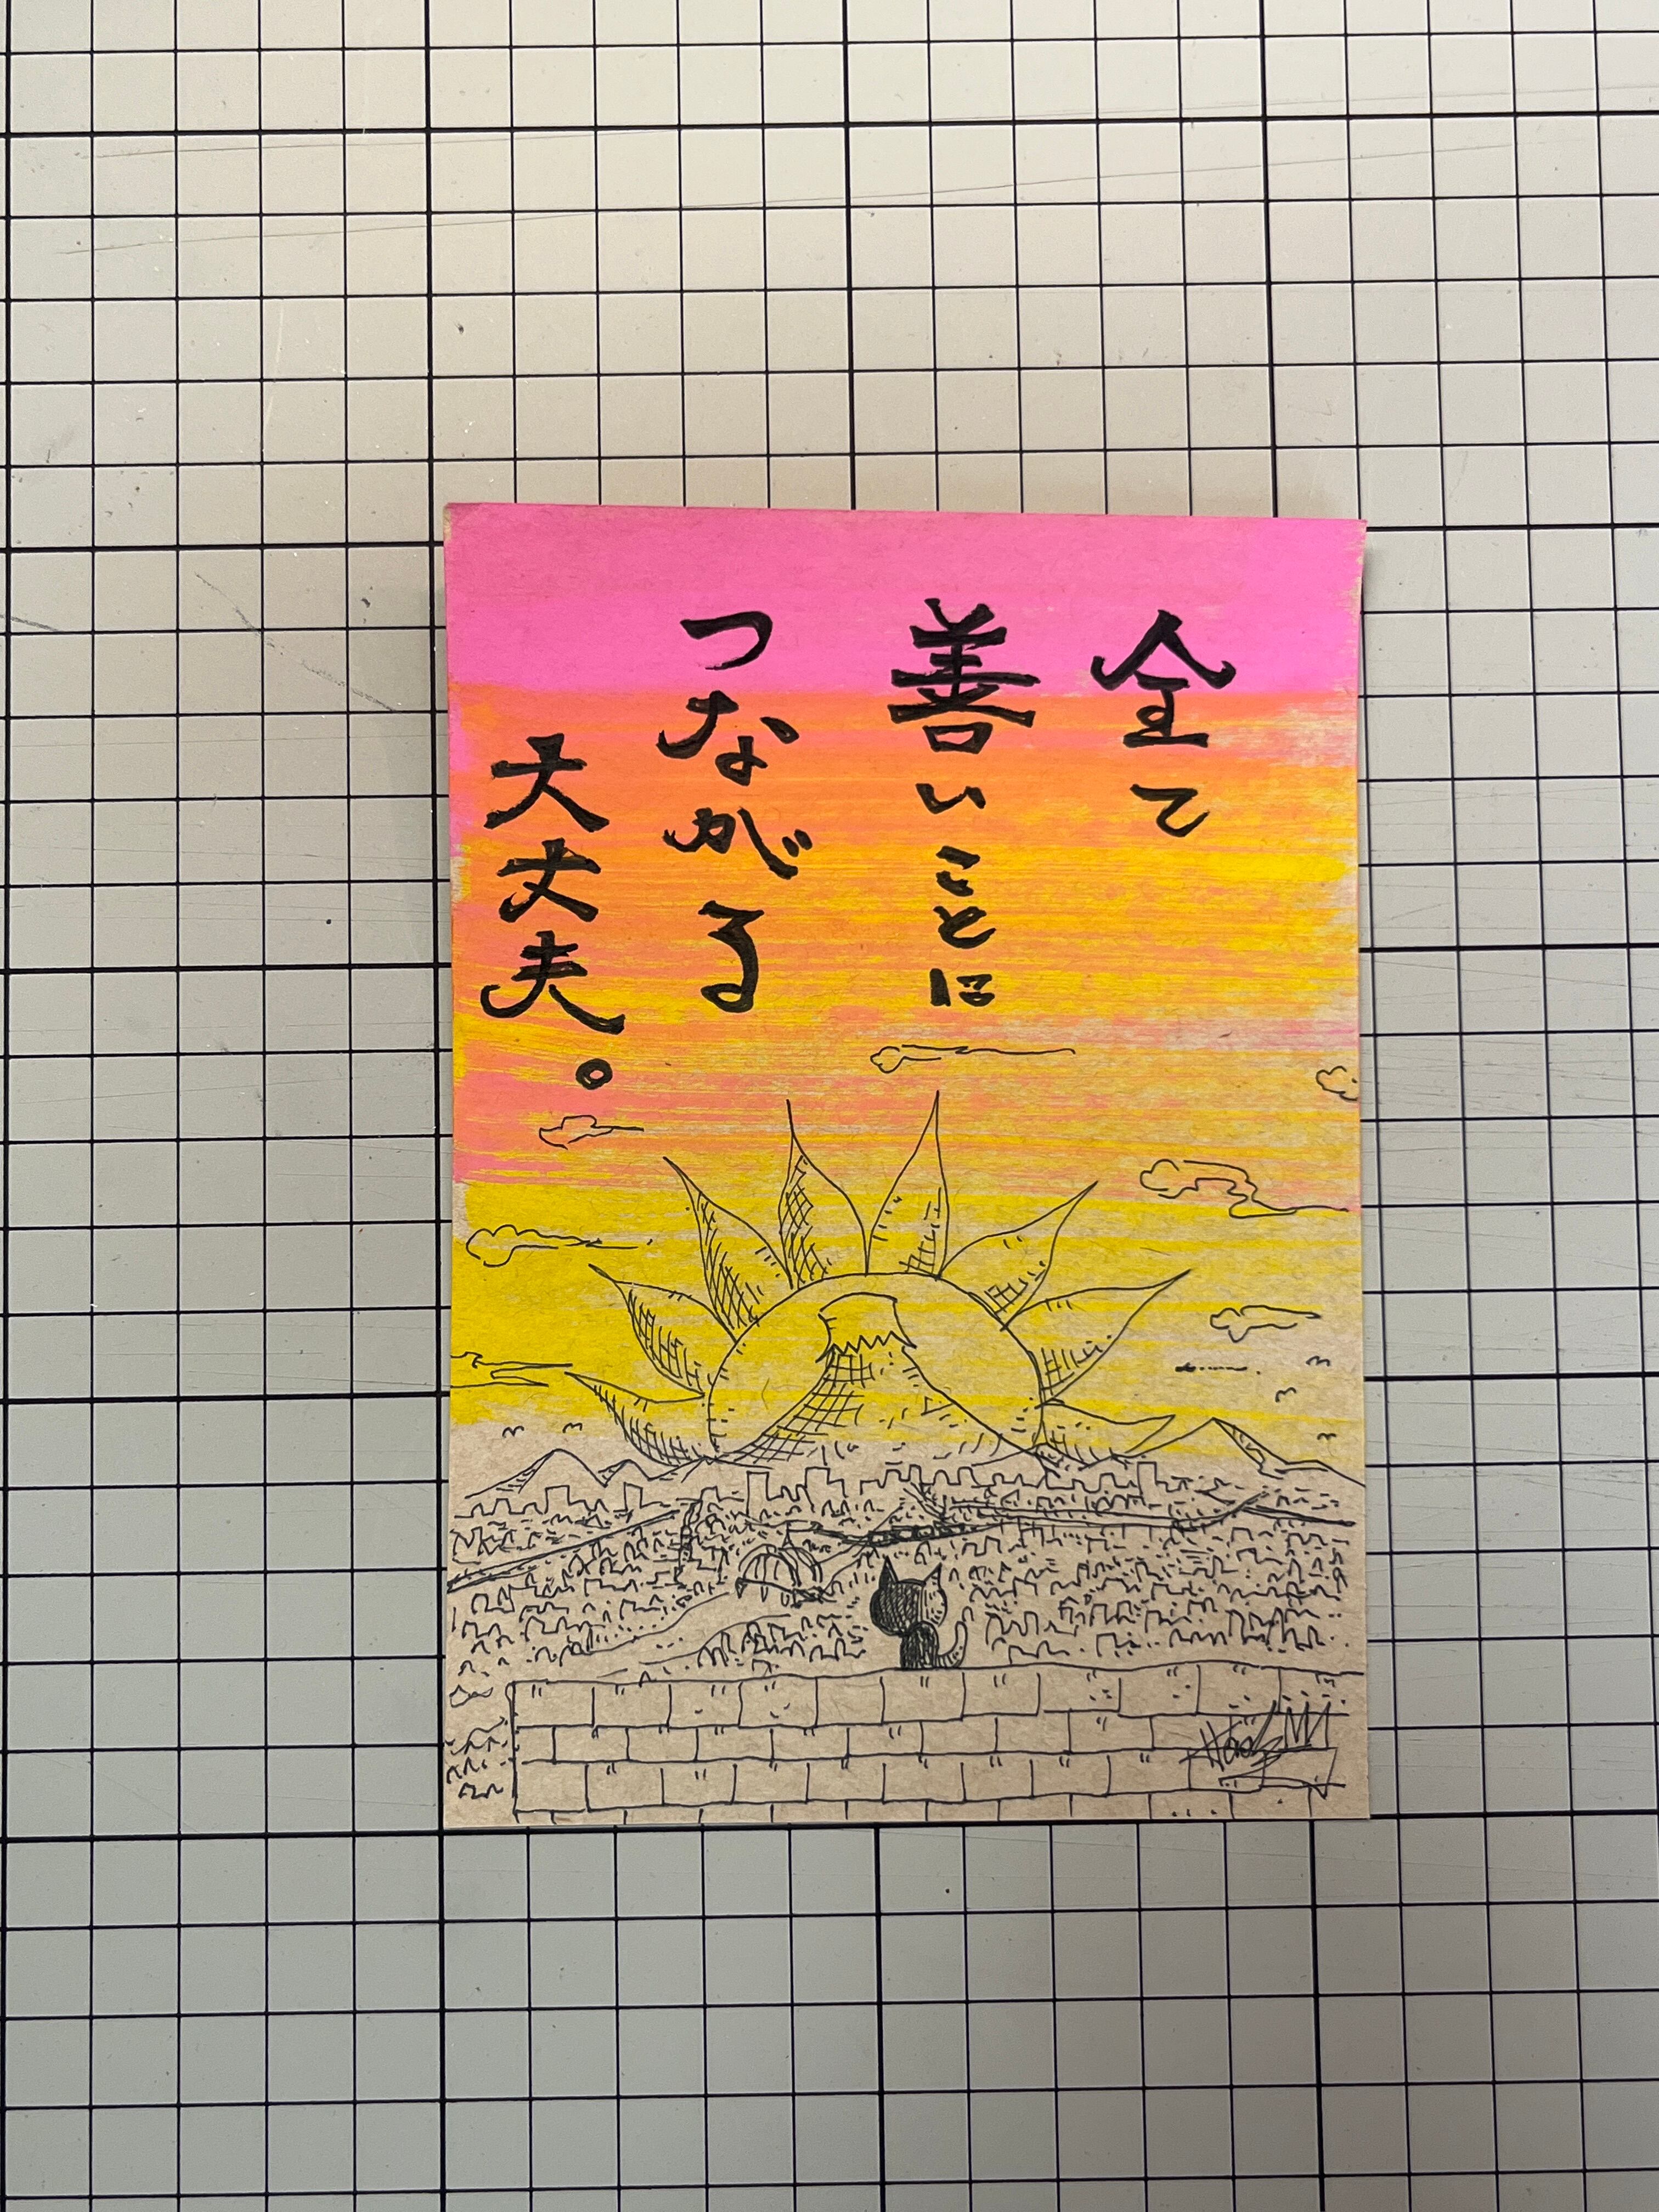 全て
善いことに
つながる
大丈夫。